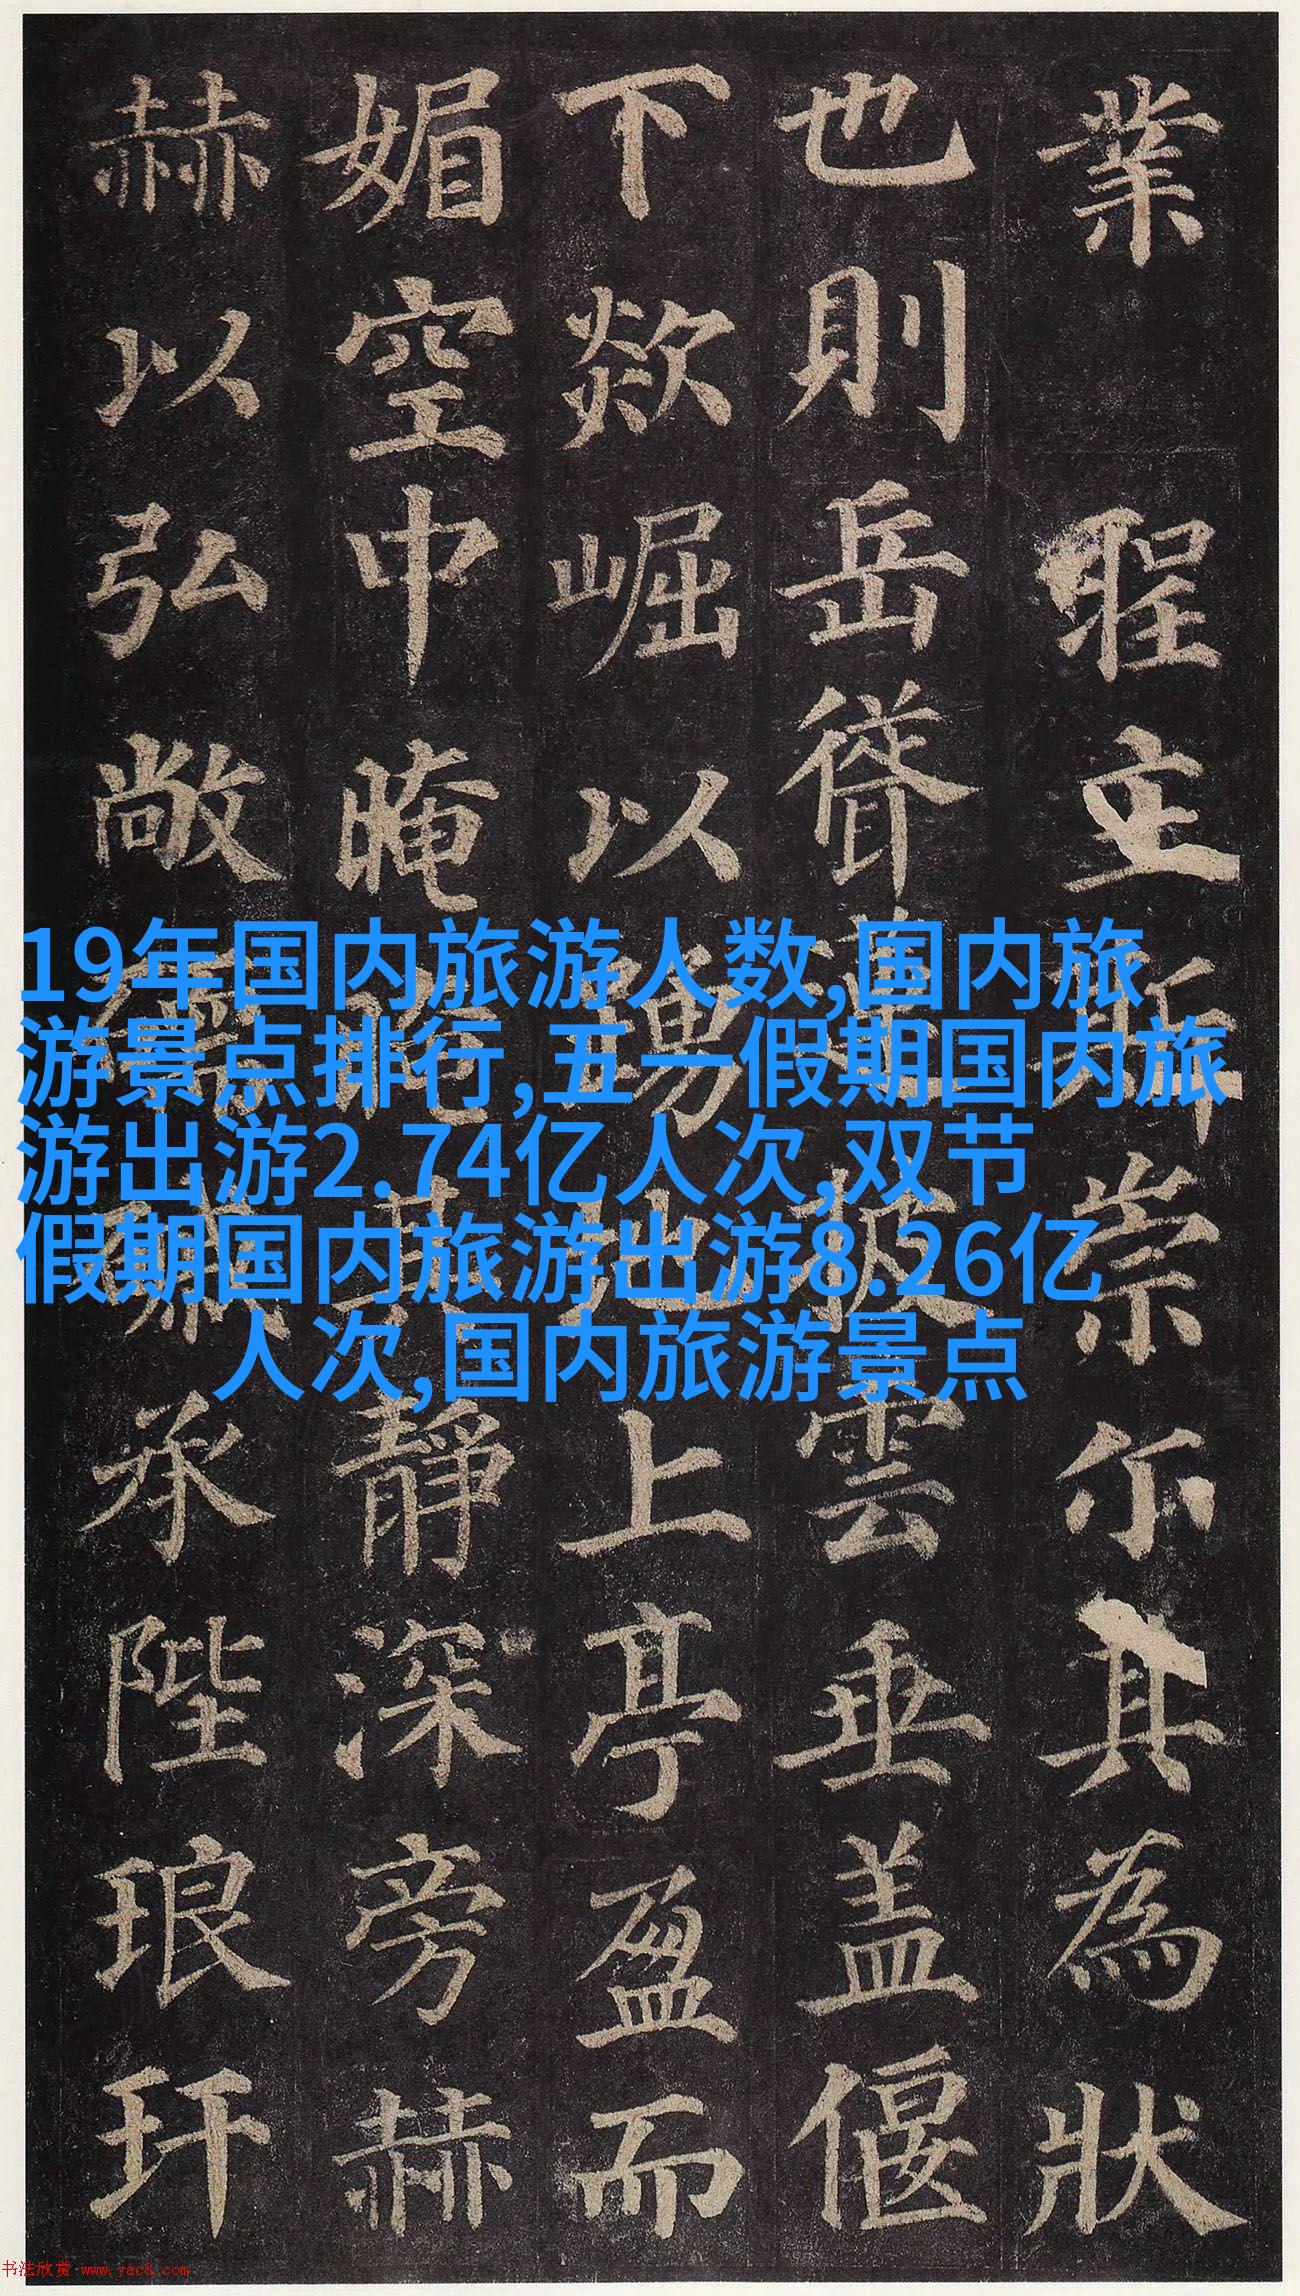 業 聖立斯崇尔其為狀
也則岳聳蓮披雲垂蓋偃
下欻崛以踴地上亭盈而
媚空中晻晻其靜深旁赫
赫以弘敞承陛琅玕
19年国内旅游人数,国内旅
游景点排行,五一假期国内旅
游出游2.74亿人次,双节
假期国内旅游出游8.26亿
人次,国内旅游景点
书法欣赏 www.yac8.com